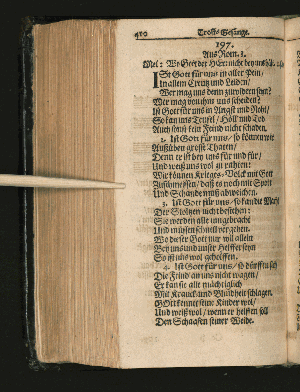 410 Trost-Gesänge.
197.
Aus Rom. 8.
Mel: Wo Gott der Herr nicht bey uns hält.
Ist Gott für uns in aller Pein/
In allem Creutz und Leiden/
Wer mag uns denn zuwidern seyn?
Wer mag von ihm uns scheiden?
Ist Gott für uns in Angst und Noht/
So kan uns Teufel/ Höll und Tod
Auch sonst kein Feind nicht schaden.
2. Ist Gott für uns/ so können wir
Außüben grosse Thaten/
Denn er ist bey uns für und für/
Und weiß uns wol zu rahten:
Wir können Krieges-Volck mit Gott
Zuschmeissen/ daß es noch mit Spott
Und Schande muß abweichen.
3. Ist Gott für uns/ so kan die Macht
Der Stoltzen nicht bestehen:
Sie werden alle umgebracht
Und müssen schnell vergehen.
Wo dieser Gott nur will allein
Bey uns und unser Helffer seyn
So ist uns wol geholffen.
4. Ist Gott für uns/ so dürffen sich
Die Feind an uns nicht wagen/
Er kan sie alle mächtiglich
Mit Kranck und Blindheit schlagen.
GOtt kennet seine Kinder wol/
Und weiß wol/ wenn er helffen soll
Den Schaafen seiner Weide.